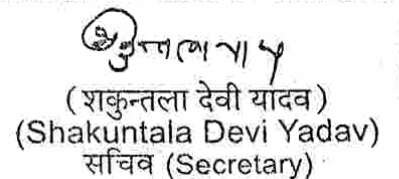 शकुन्तला यादव
( शकुन्तला देवी यादव )
(Shakuntala Devi Yadav)
सचिव (Secretary)